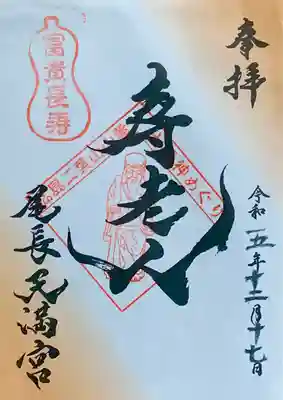 奉拝
令和五年十二月十七日
寿老人
富貴長寿
尾長天満宮